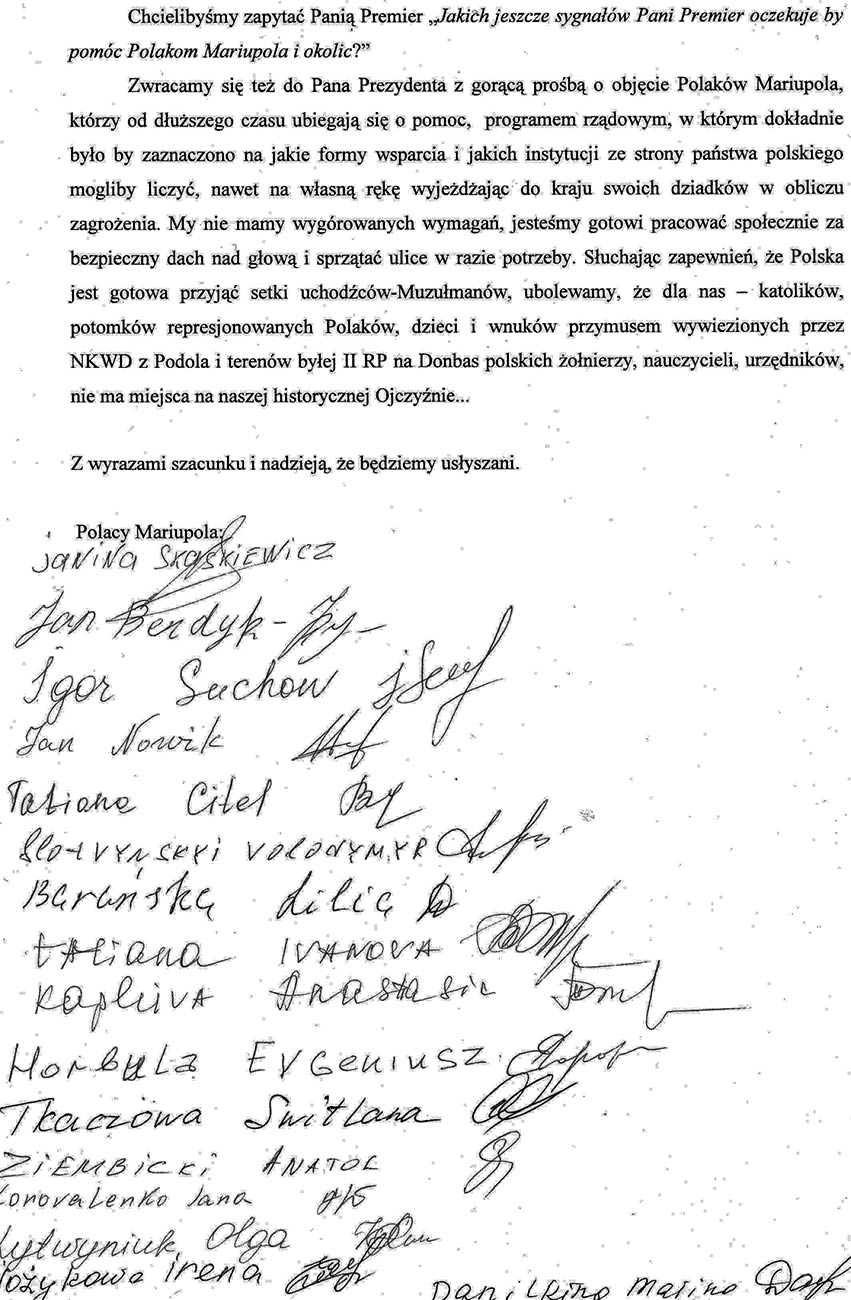 Chcielibyśmy zapytać Panią Premier „Jakich jeszcze sygnałów Pani Premier oczekuje by
pomóc Polakom Mariupola i okolic?”
Zwracamy się też do Pana Prezydenta z gorącą prośbą o objęcie Polaków Mariupola,
którzy od dłuższego czasu ubiegają się o pomoc, programem rządowym, w którym dokładnie
było by zaznaczono na jakie formy wsparcia i jakich instytucji ze strony państwa polskiego
mogliby liczyć, nawet na własną rękę wyjeżdżając do kraju swoich dziadków w obliczu
zagrożenia. My nie mamy wygórowanych wymagań, jesteśmy gotowi pracować społecznie za
bezpieczny dach nad głową i sprzątać ulice w razie potrzeby. Słuchając zapewnień, że Polska
jest gotowa przyjąć setki uchodźców-Muzułmanów, ubolewamy, że dla nas – katolików,
potomków represjonowanych Polaków, dzieci i wnuków przymusem wywiezionych przez
NKWD z Podola i terenów byłej II RP na Donbas polskich żołnierzy, nauczycieli, urzędników,
nie ma miejsca na naszej historycznej Ojczyźnie...
Z wyrazami szacunku i nadzieją, że będziemy usłyszani.
Polacy Mariupola:
JANINA
Jan Berdyk
Igor Suchow
Jan Nowik
Tatiana Citel
VOLODYMYR
Barańska Lilia
tatiana IVANOVA
Anastasia
Horbula EVGENIUSZ
Tkaczowa Switlana
ZIEMBICKI ANATOL
Jana
Olga
irena
Marina